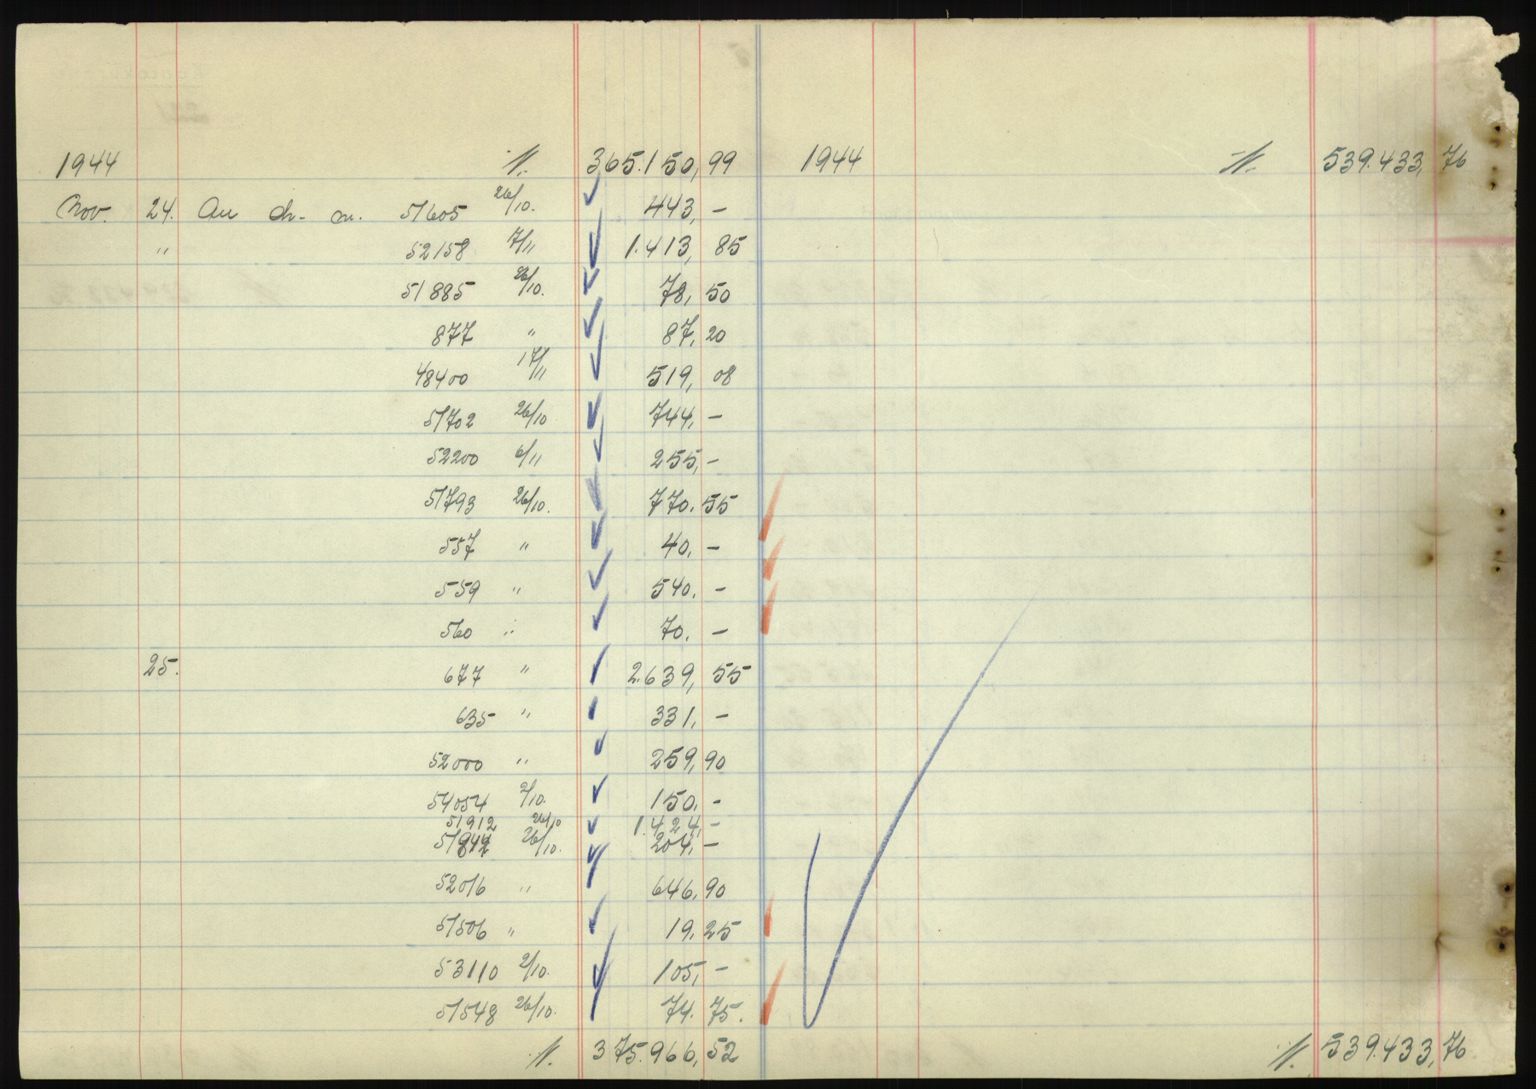 1944 ·/·. 365.150,99 1944 ·/·. 539.433,76
Nov. 24. An ch. n. 51605 26/10. 443,-
" 52158 7/11 1.413,85
51885 26/10. 78,50
877 " 87,20
48400 17/11 519,08
51702 26/10 744,-
52200 6/11 255,-
51793 26/10. 770.55
557 " 40.-
559 " 540.-
560 " 70.-
25. 677 " 2.639,55
635 " 331,-
52000 " 259,90
54054 2/10. 150,-
51912 26/10 1.424,-
51842 26/10. 204,-
52016 " 646,90
51506 " 19.25
53110 2/10. 105,-
51548 26/10. 74.75.
·/·. 375.966,52 ·/·. 539.433,76